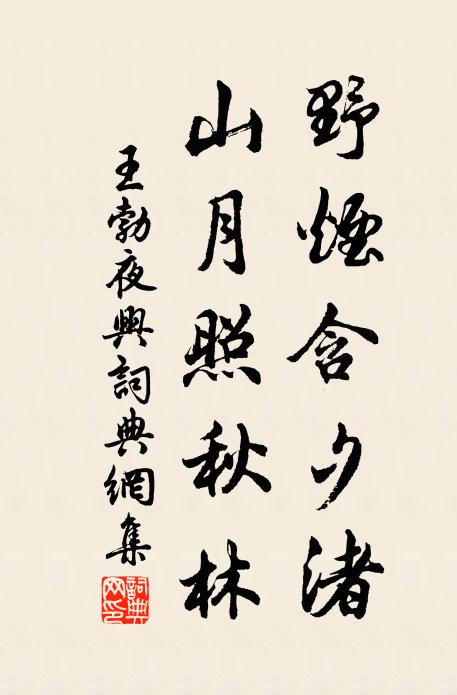 野煙含夕渚
山月照秋林
王勃夜興詞典網集
詞典网印